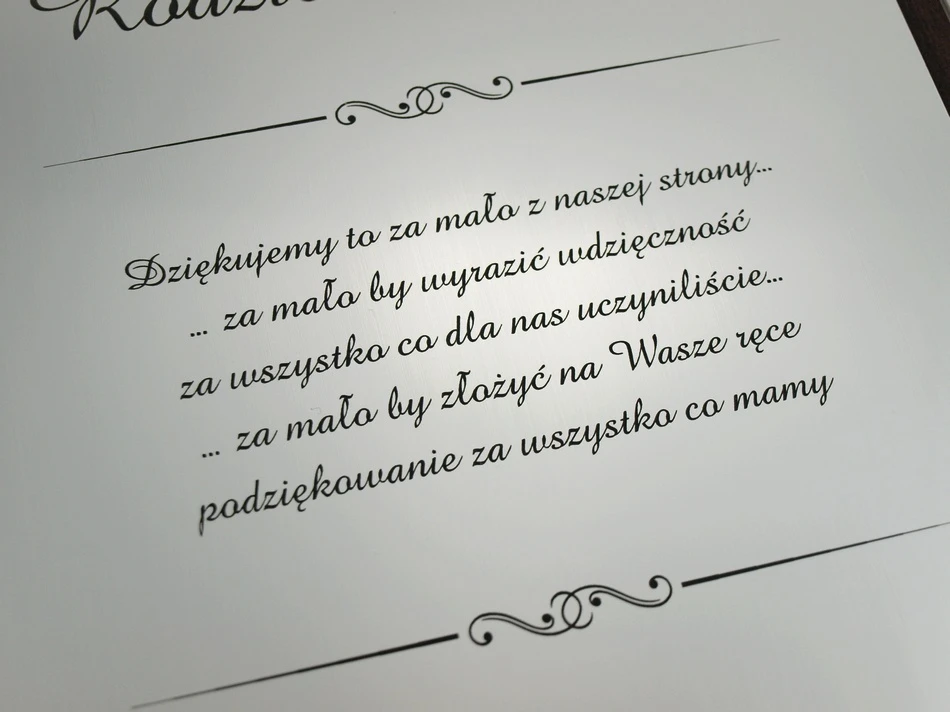 Dziękujemy to za mało z naszej strony...
... za mało by wyrazić wdzięczność
za wszystko co dla nas uczyniliście...
... za mało by złożyć na Wasze ręce
podziękowanie za wszystko co mamy